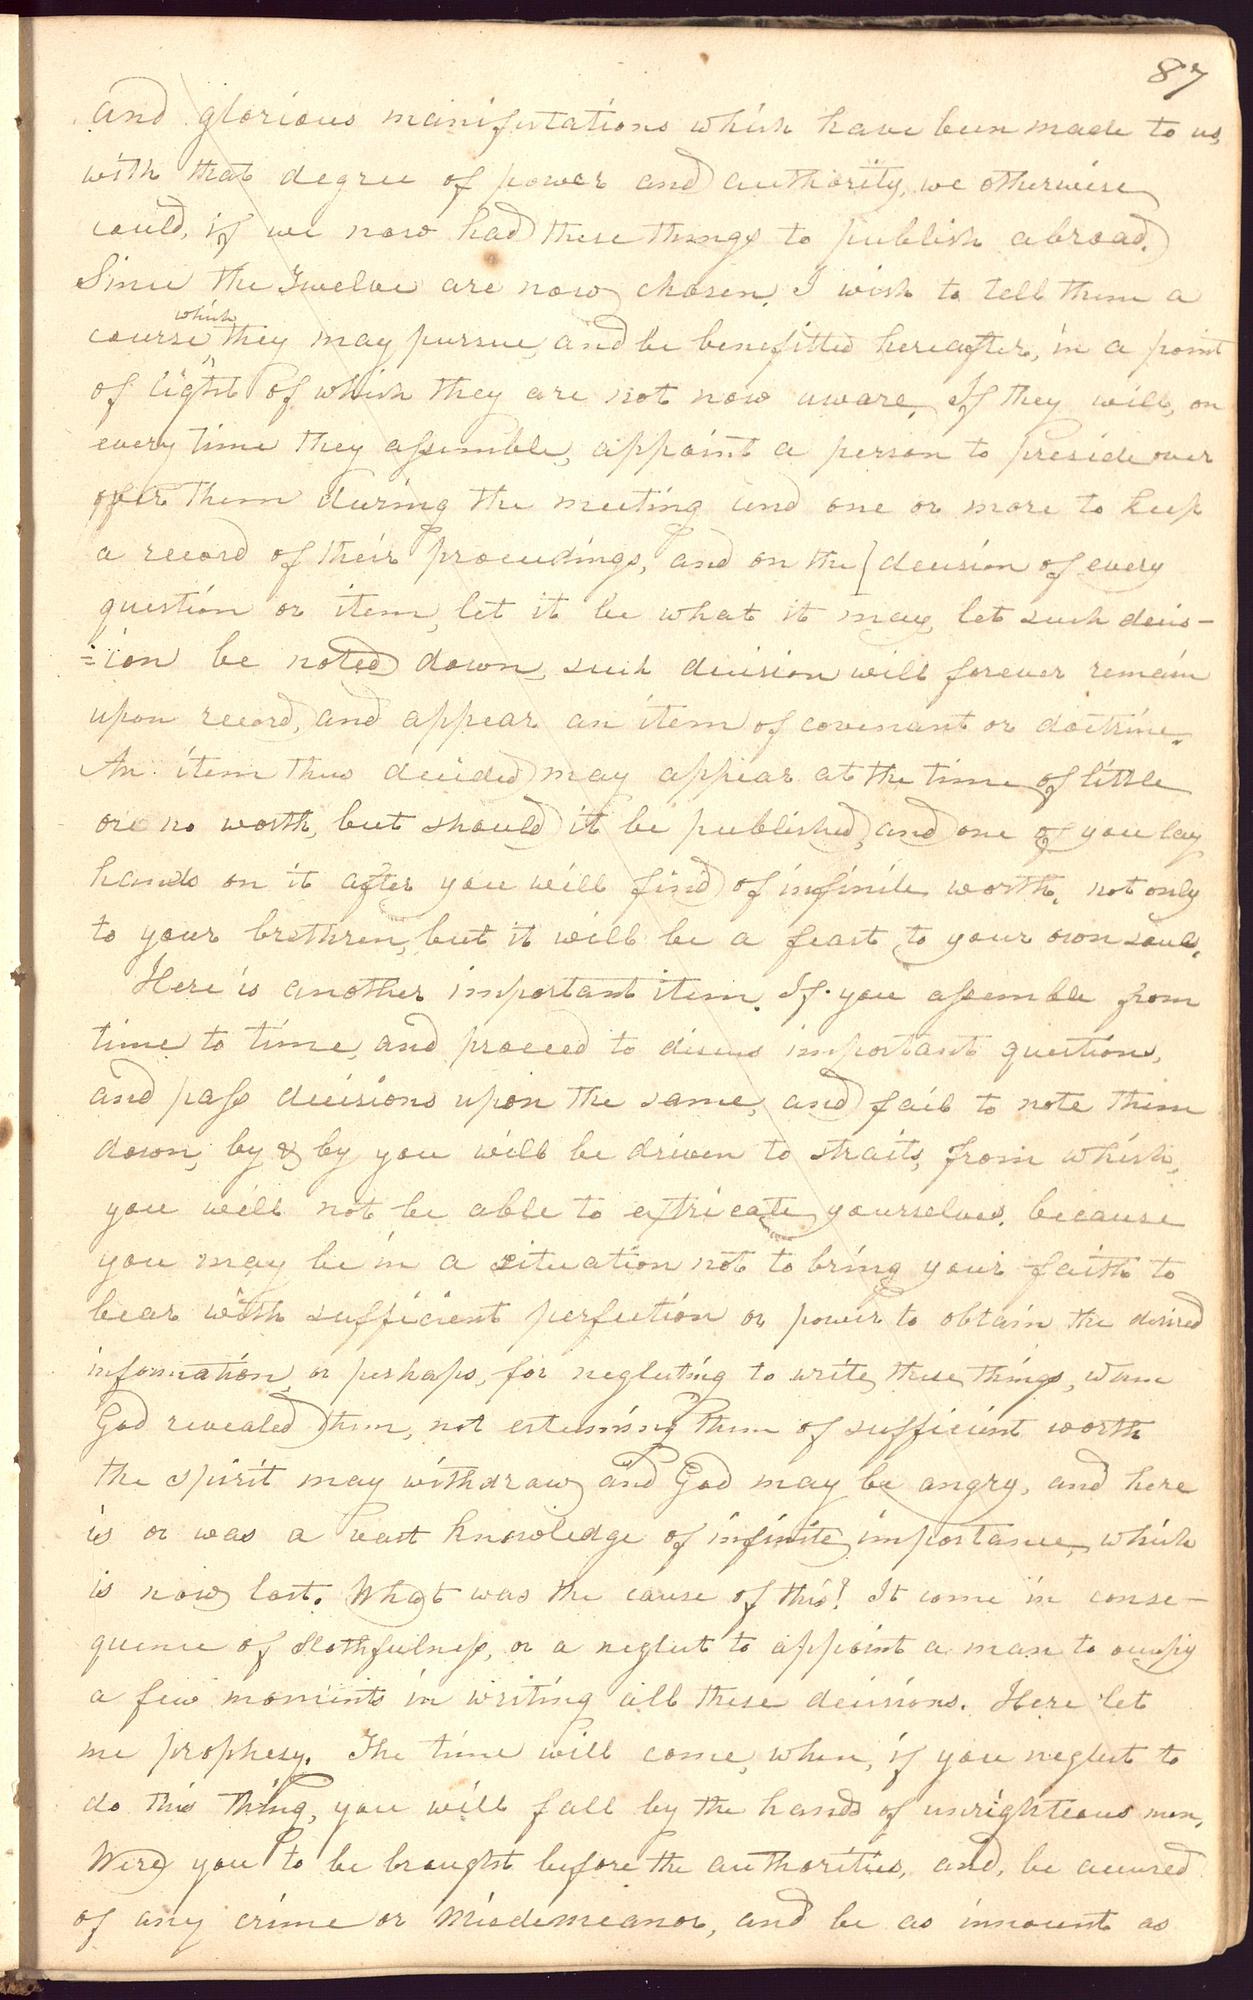 87
and glorious manifestations which have been made to us,
with that degree of power and authority, we otherwise
could, if we now had these things to publish abroad.
Since the Twelve are now chosen, I wish to tell them a
which
course they may pursue, and be benefitted hereafter, in a point
of light of which they are not now aware. If they will, on
every time they assemble, appoint a person to preside over
over them during the meeting and one or more to keep
a record of their proceedings, and on the decision of every
question or item, let it be what it may, let such decis-
=ion be noted down, such decision will forever remain
upon record, and appear an item of covenant or doctrine.
An item thus decided may appear at the time of little
or no worth, but should it be published, and one of you lay
hands on it after you will find of infinite worth, not only
to your brethren, but it will be a feast to your own soul.
Here is another important item. If you assemble from
time to time, and proceed to discuss important questions,
and pass decisions upon the same, and fail to note them
down, by & by you will be driven to straits, from which,
you will not be able to extricate yourselves, because
you may be in a situation not to bring your faith to
bear with sufficient perfection or power to obtain the desired
information, or perhaps, for neglecting to write these things, when
God revealed them, not esteeming them of sufficient worth
the spirit may withdraw and God may be angry, and here
is or was a vast knowledge of infinite importance, which
is now lost. What was the cause of this? It come in conse-
quence of slothfulness, or a neglect to appoint a man to occupy
a few moments in writing all these decisions. Here let
me prophesy. The time will come, when, if you neglect to
do this thing, you will fall by the hands of unrighteous men.
Were you to be brought before the authorities, and, be accused
of any crime or misdemeanor, and be as innocent as